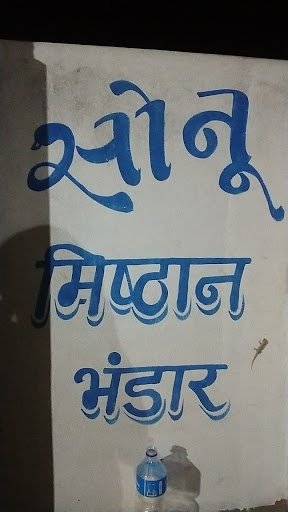 सोनू
मिष्ठान
भंडार